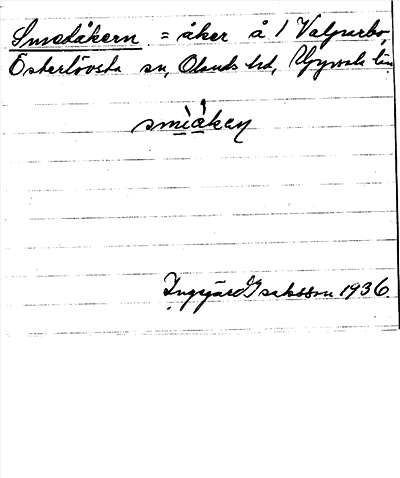 Smedåkern = åker å 1 Valparbo,
Österlövsta sn, Olands hd, Uppsala län.
smìákeṇ
Ingegärd Isaksson 1936.